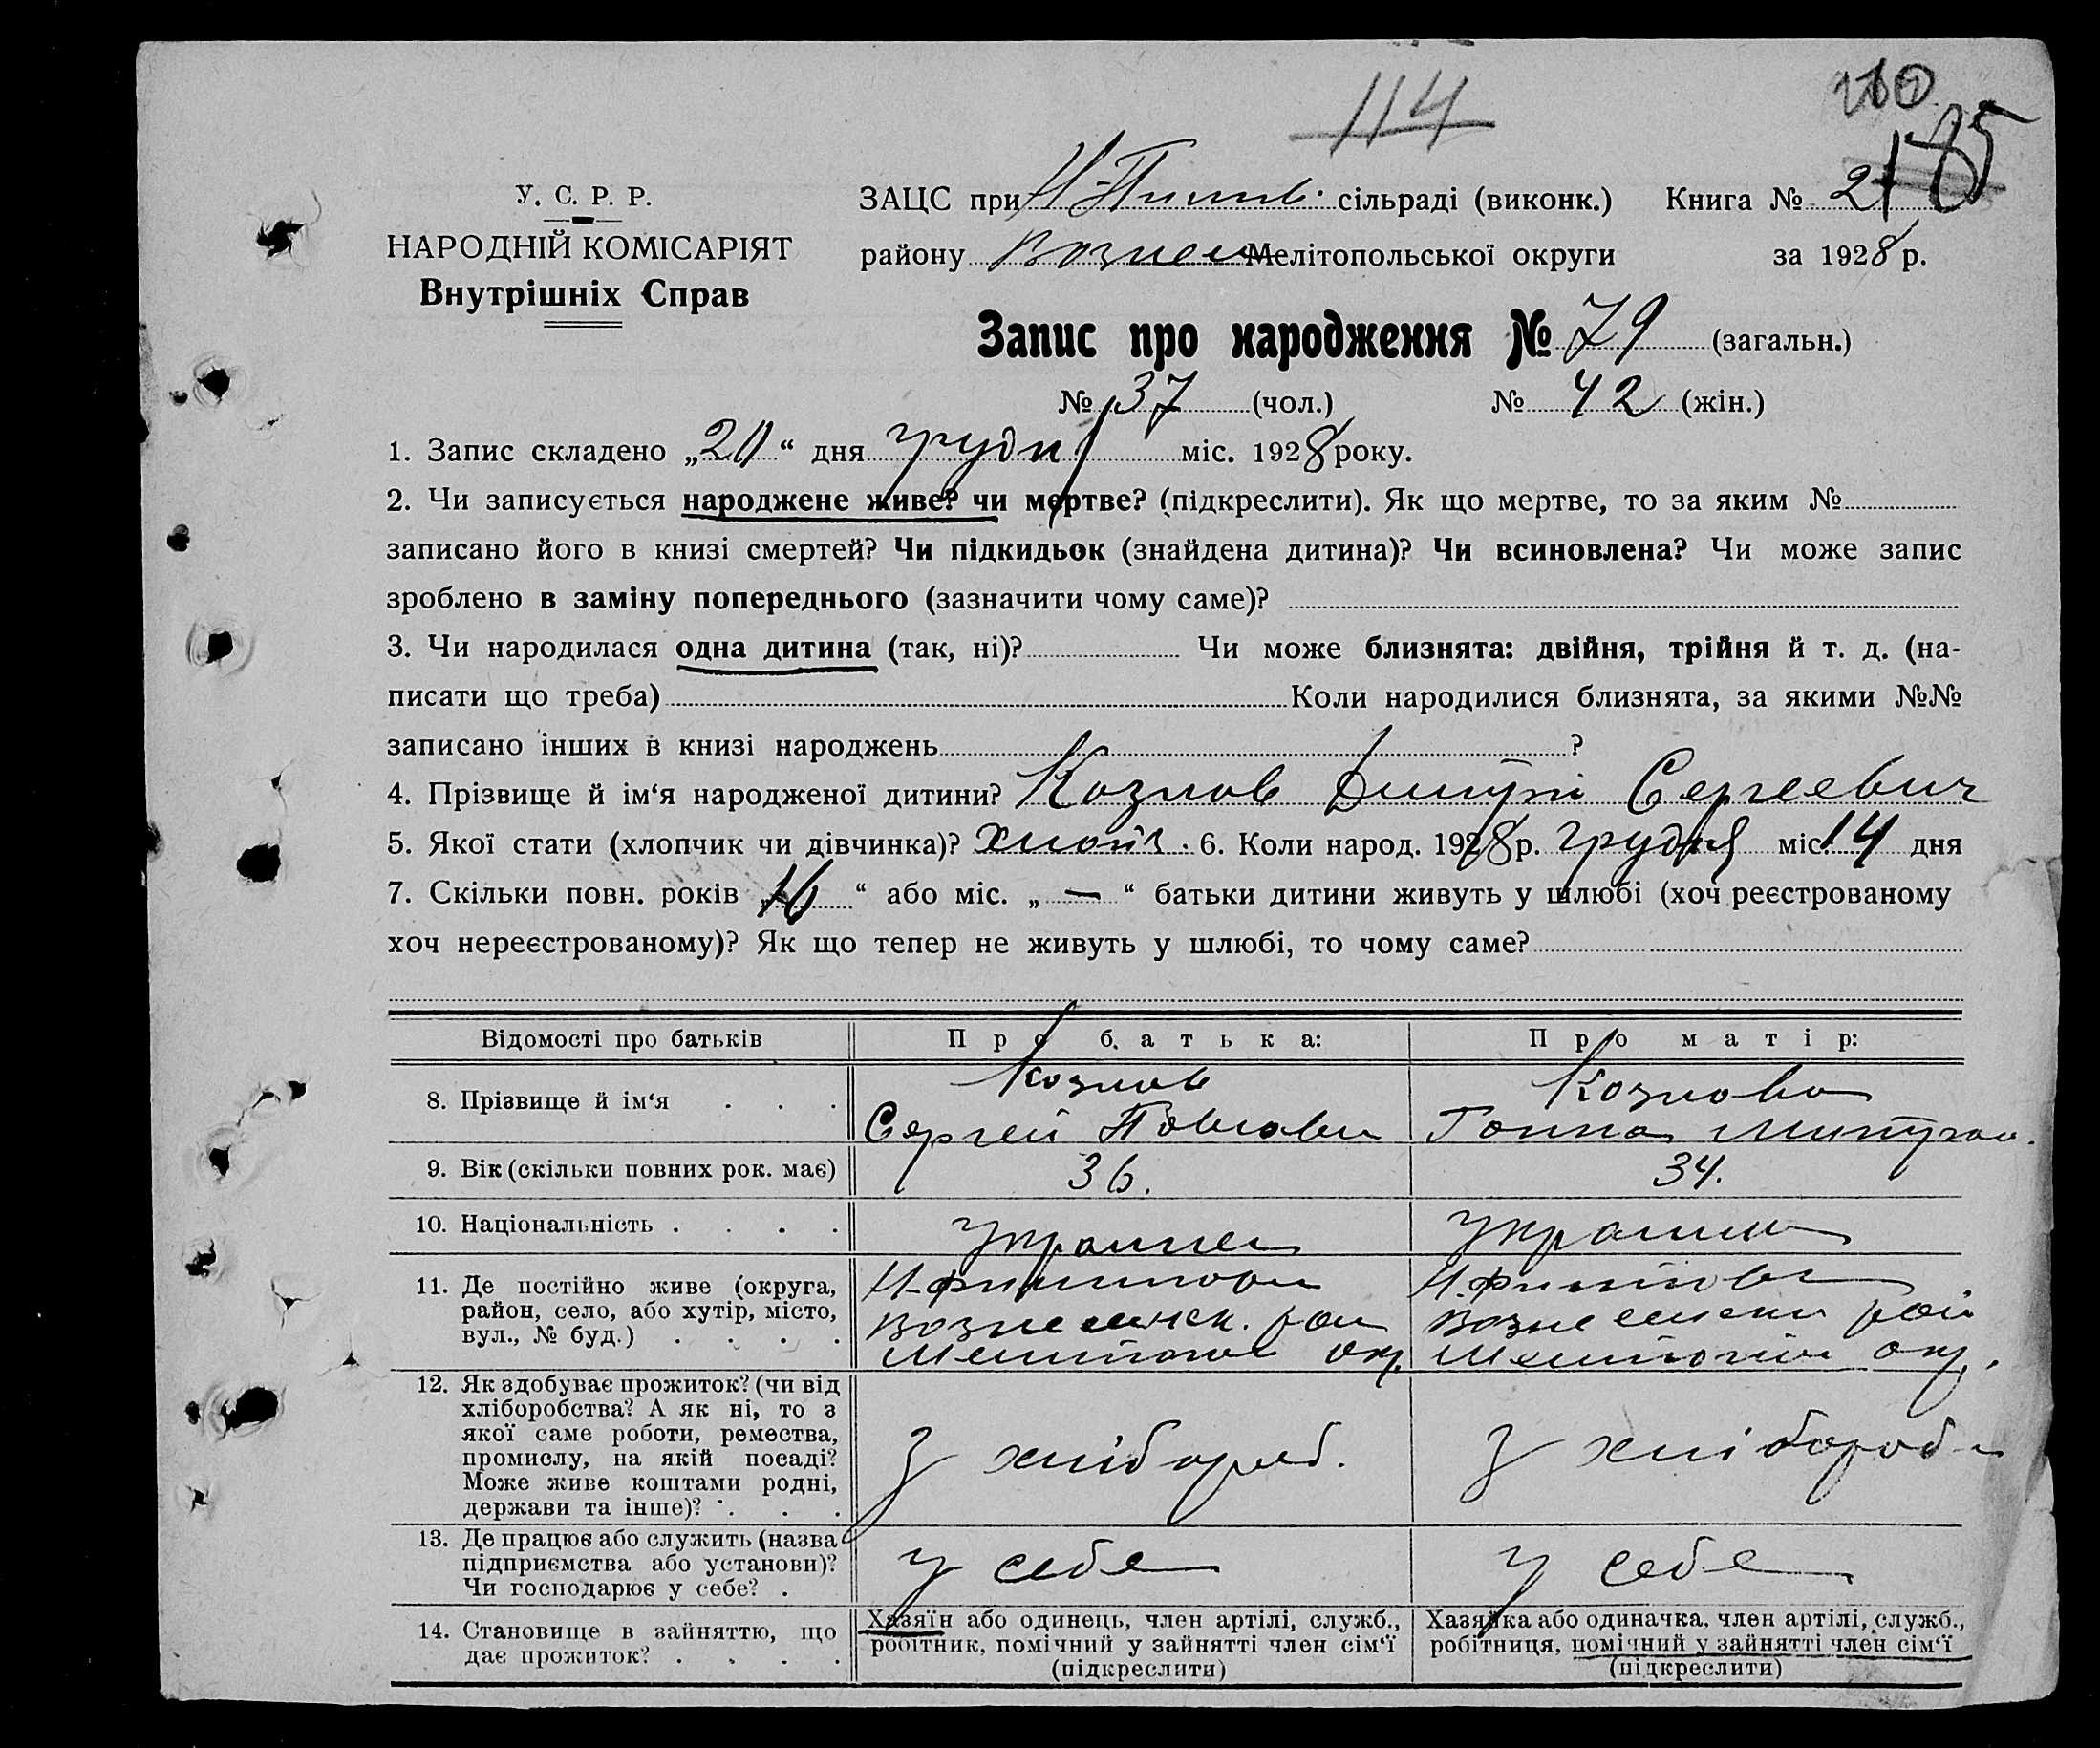 114
185
У. С. Р. Р.
НАРОДНІЙ КОМІСАРІЯТ
Внутрішніх Справ
ЗАЦС при сільраді (виконк.) Книга № 2
району Вознес Мелітопольської округи за 1928 р.
Запис про народження № 79 (загальн.)
№ 37 (чол.) № 42 (жін.)
1. Запис складено „20“ дня грудня міс. 1928 року.
2. Чи записується народжене живе? чи мертве? (підкреслити). Як що мертве, то за яким №
записано його в книзі смертей? Чи підкидьок (знайдена дитина)? Чи всиновлена? Чи може запис
зроблено в заміну попереднього (зазначити чому саме)?
3. Чи народилася одна дитина (так, ні)? Чи може близнята: двійня, трійня й т. д. (на-
писати що треба) Коли народилися близнята, за якими №№
записано інших в книзі народжень ?
4. Прізвище й ім‘я народженої дитини? Козлов Дмитрі Сергеевич
5. Якої стати (хлопчик чи дівчинка)? хлопч. 6. Коли народ. 1928 р. грудня міс. 14 дня
7. Скільки повн. років „16“ або міс. „—“ батьки дитини живуть у шлюбі (хоч реєстрованому
хоч нереєстрованому)? Як що тепер не живуть у шлюбі, то чому саме?
Відомості про батьків Про батька: Про матір:
8. Прізвище й ім‘я
Козлов
Сергей Павлови
Козлова
Ганна
9. Вік (скільки повних рок. має) 36. 34.
10. Національність украинец украин
11. Де постійно живе (округа,
район, село, або хутір, місто,
вул., № буд.)
Н-Филипови
Вознесенск. рай
Мелитопол окр.
Н. Филипови
Вознесенски рай
Мелитопол окр.
12. Як здобуває прожиток? (чи від
хліборобства? А як ні, то з
якої саме роботи, ремества,
промислу, на якій посаді?
Може живе коштами родні,
держави та інше)?
З хлібороб.
З хлібороб
13. Де працює або служить (назва
підприємства або установи)?
Чи господарює у себе?
у себе
у себе
14. Становище в зайняттю, що
дає прожиток?
Хазяїн або одинець, член артілі, служб.,
робітник, помічний у зайнятті член сім‘ї
(підкреслити)
Хазяйка або одиначка, член артілі, служб.,
робітниця, помічний у зайнятті член сім‘ї
(підкреслити)